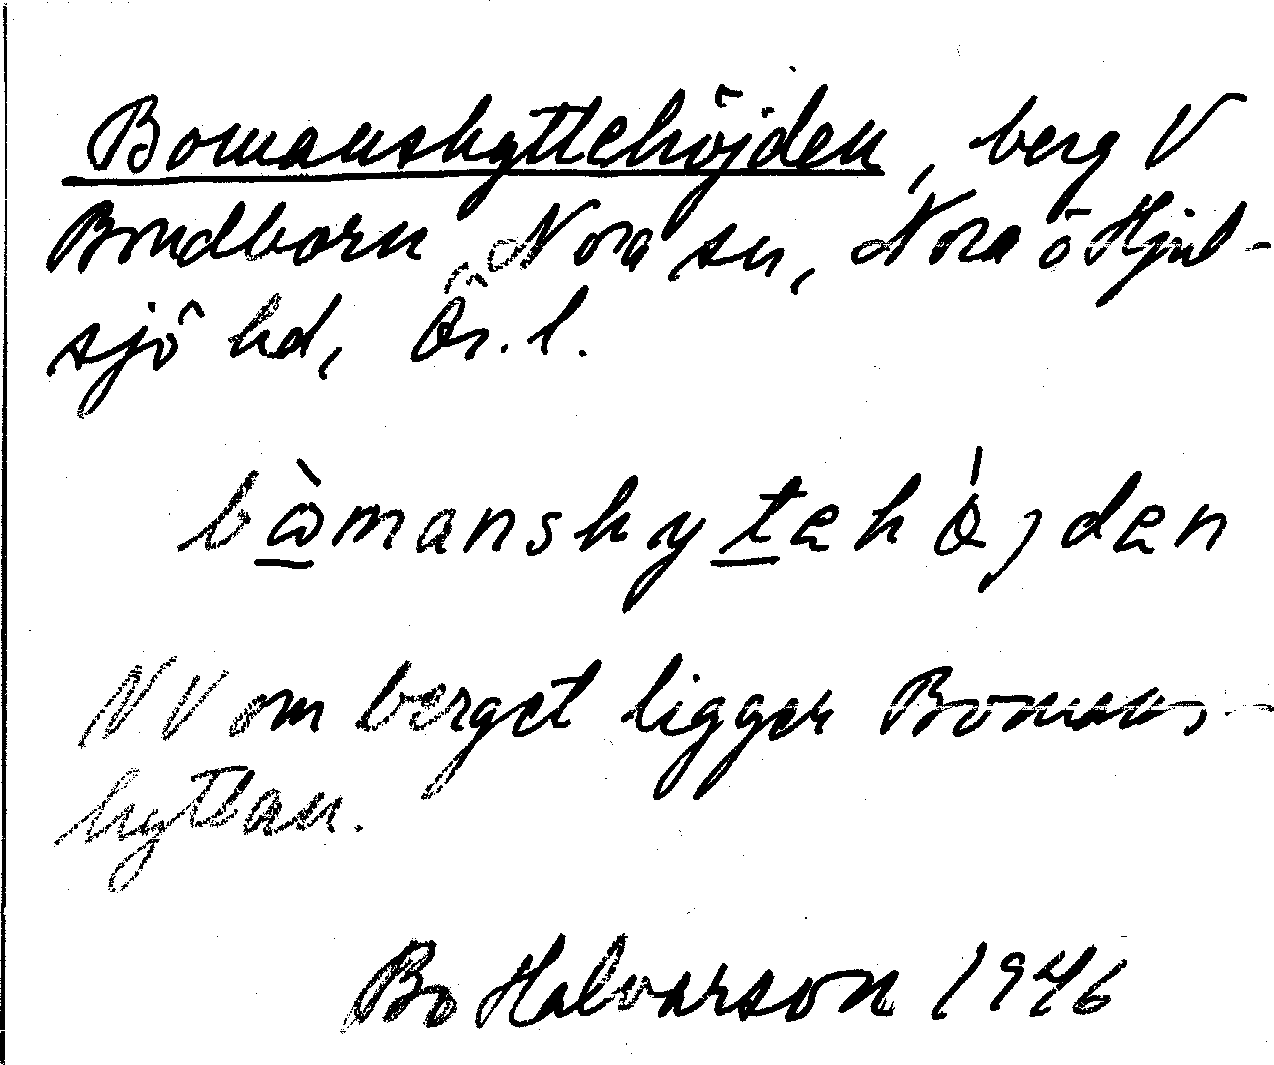 Bomanshyttehöjden, berg V
Bondborn, Nora sn, Nora ö Hjul-
sjö hd, Ör. l.
bὼmanshytehǿjden
NV om berget ligger Bomans-
hyttan.
Bo Halvarson 1946